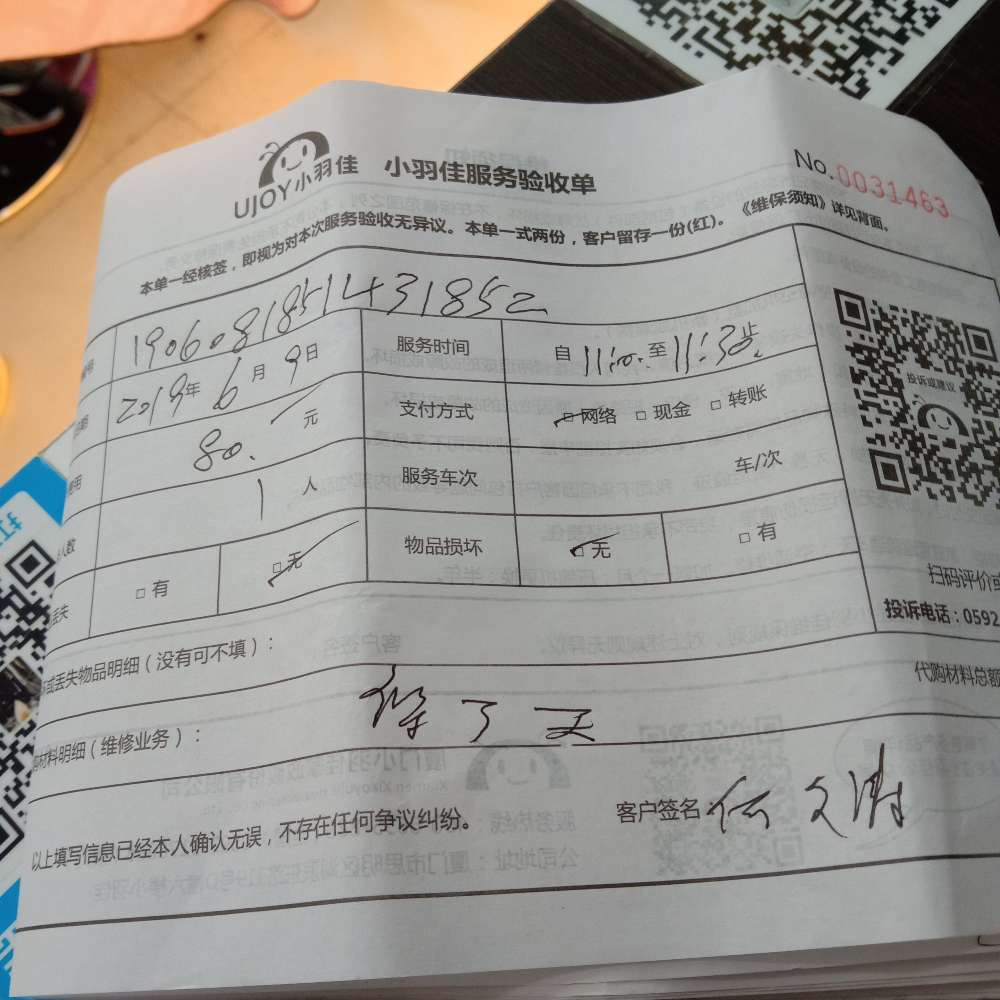 UJOY小羽佳 小羽佳服务验收单 No.0031463
本单一经核签，即视为对本次服务验收无异议。本单一式两份，客户留存一份(红)。《维保须知》详见背面。
190608185114431852
2019年6月9日 服务时间 自11:00.至11:30.
80.元 支付方式 □网络 □现金 □转账
1人 服务车次 车/次
人数
丢失 □有 □无 物品损坏 □无 □有
投诉或建议
扫码评价或
投诉电话：0592
或丢失物品明细（没有可不填）：
代购材料总额
材料明细（维修业务）：
以上填写信息已经本人确认无误，不存在任何争议纠纷。 客户签名：